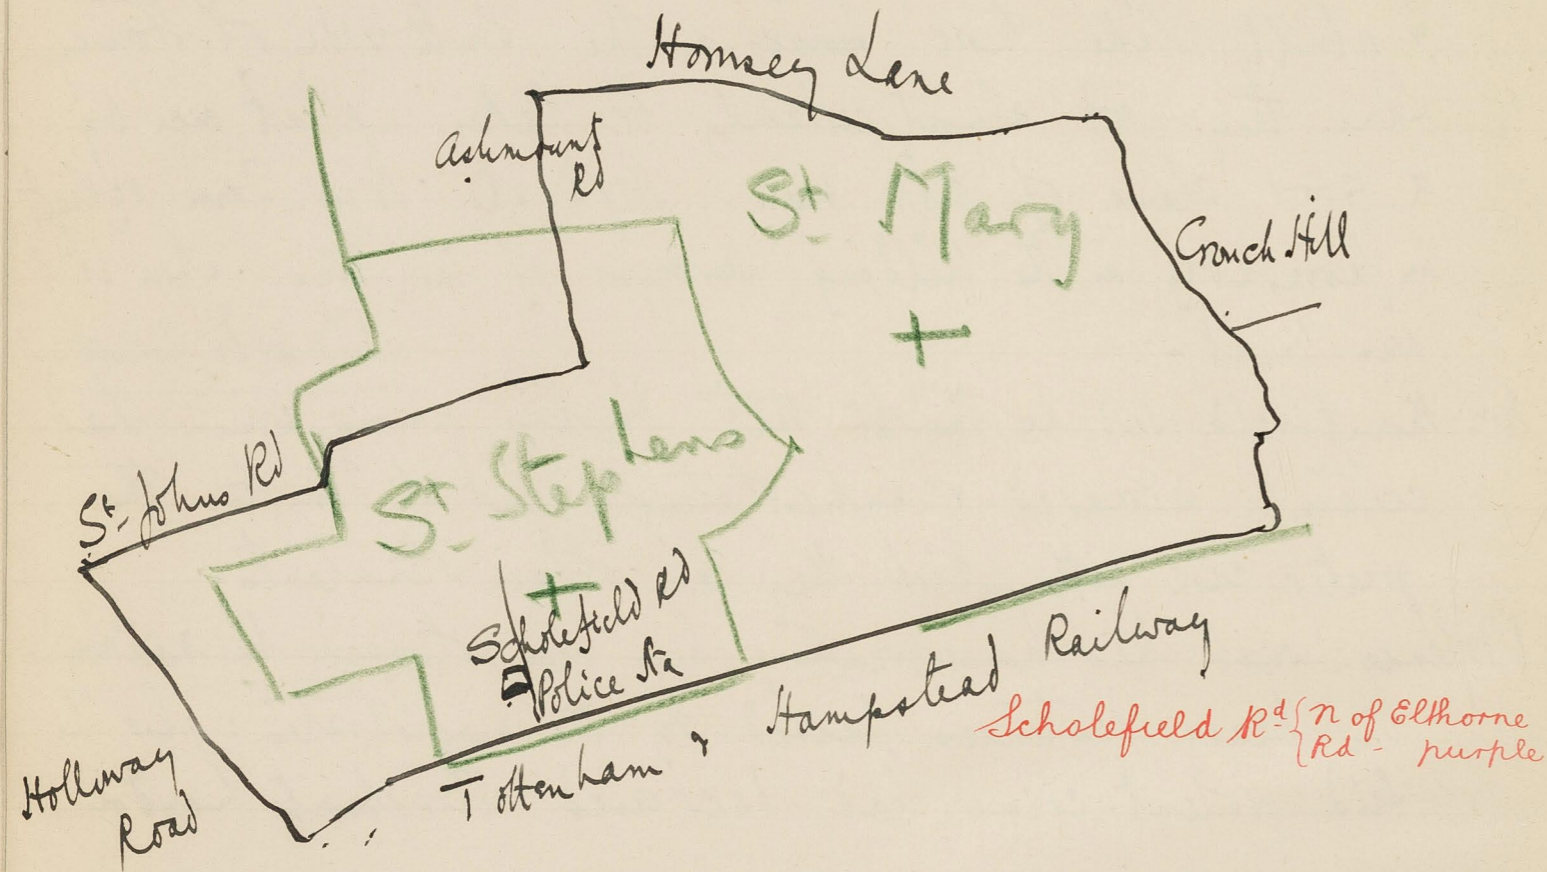 Hornsey Lane
Ashmount
Rd
St. Mary
Crouch Hill
St. Johns Rd
St. Stephens
Scholefield Rd
Police Sta
Tottenham & Hampstead Railway
Holloway
Road
Scholefield Rd { N of Elthorne
Rd - purple